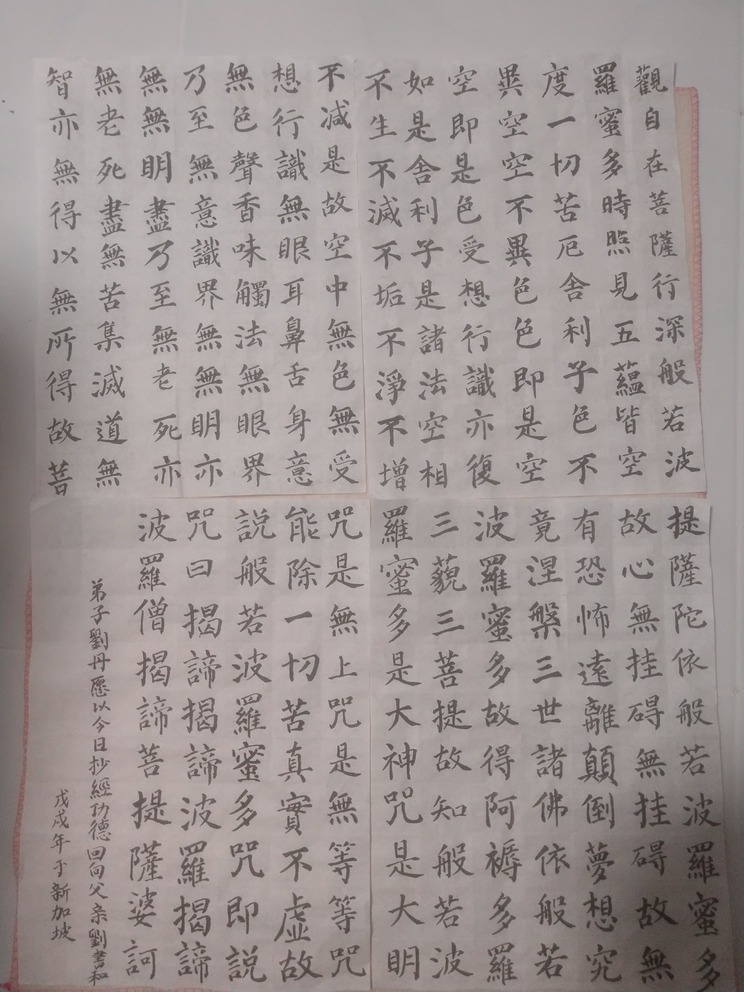 觀自在菩薩行深般若波
羅蜜多時照見五蘊皆空
度一切苦厄舍利子色不
異空空不異色色即是空
空即是色受想行識亦復
如是舍利子是諸法空相
不生不滅不垢不淨不增
不減是故空中無色無受
想行識無眼耳鼻舌身意
無色聲香味觸法無眼界
乃至無意識界無無明亦
無無明盡乃至無老死亦
無老死盡無苦集滅道無
智亦無得以無所得故菩
提薩陀依般若波羅蜜多
故心無挂碍無挂碍故無
有恐怖遠離顛倒夢想究
竟涅槃三世諸佛依般若
波羅蜜多故得阿褥多羅
三藐三菩提故知般若波
羅蜜多是大神咒是大明
咒是無上咒是無等等咒
能除一切苦真實不虛故
說般若波羅蜜多咒即說
咒曰揭諦揭諦波羅揭諦
波羅僧揭諦菩提薩婆訶
弟子劉丹愿以今日抄經功德回向父亲劉書和
戊戌年于新加坡